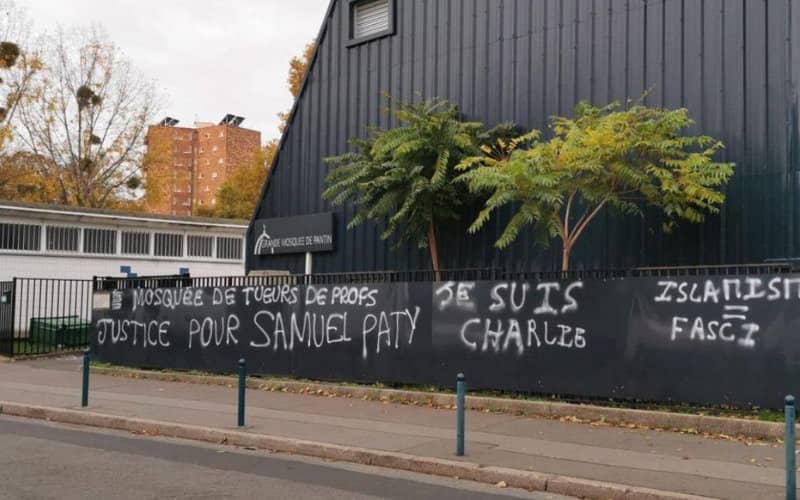 GRANDE MOSQUÉE DE PANTIN
MOSQUÉE DE TUEURS DE PROFS
JUSTICE POUR SAMUEL PATY
JE SUIS
CHARLIE
ISLAMISM
=
FASCI